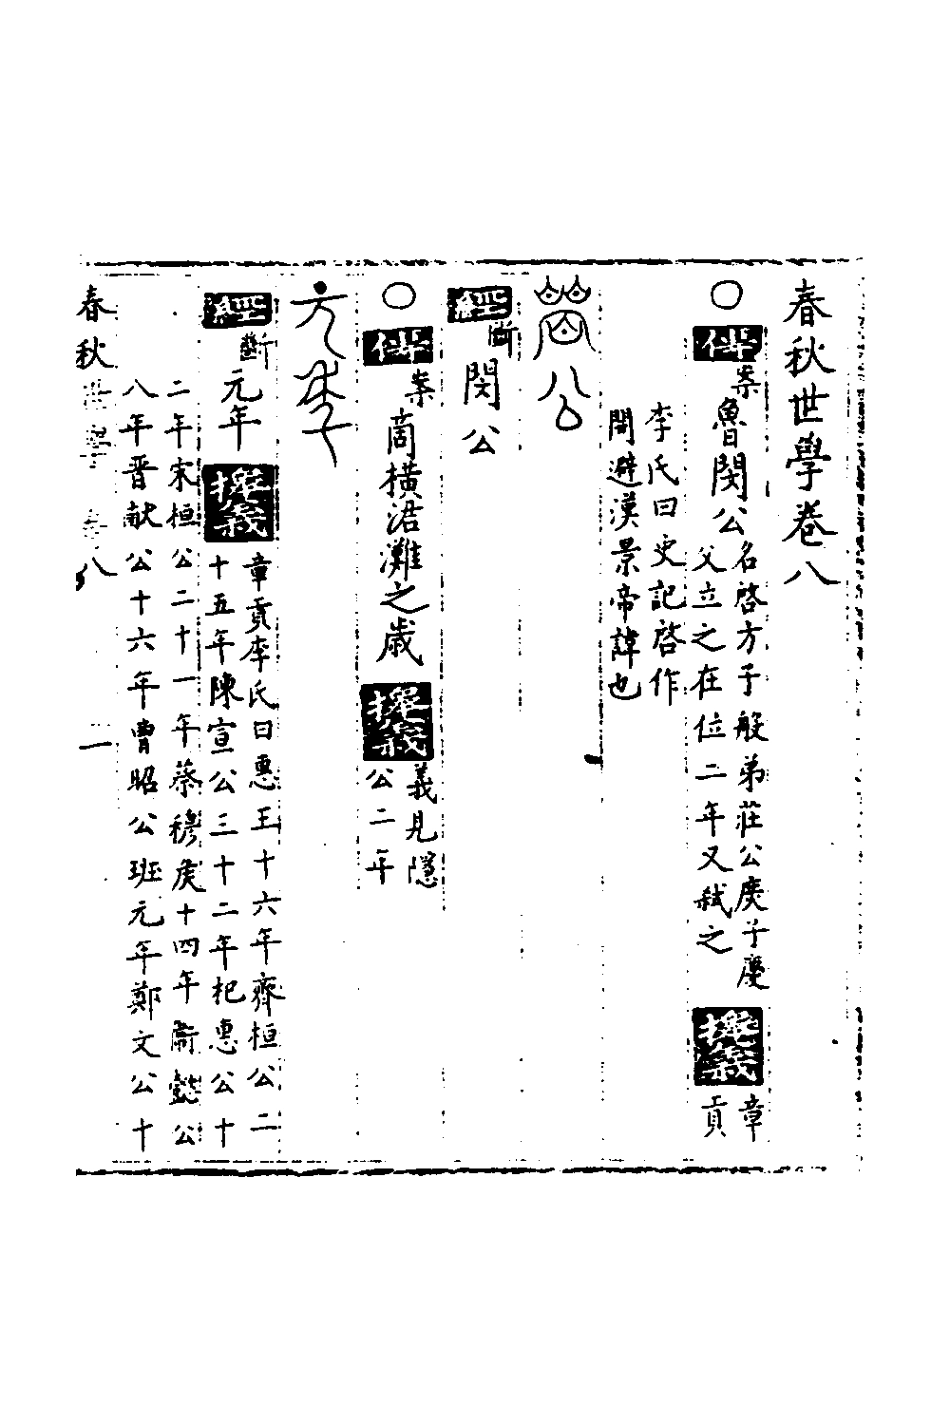 春秋世學卷八
○傳案魯閔公名啓方子般弟莊公庶子慶
父立之在位二年又弑之
擇義章
貢
李氏曰史記啓作
開避漢景帝諱也
公
經斷閔公
○傳案商橫涒灘之歲擇義義見隱
公二年
元年
經斷元年擇義章貢李氏曰惠王十六年齊桓公二
十五年陳宣公三十二年杞惠公十
二年宋桓公二十一年蔡穆侯十四年衛懿公
八年晉獻公十六年曹昭公班元年鄭文公十
春秋世學卷八
一